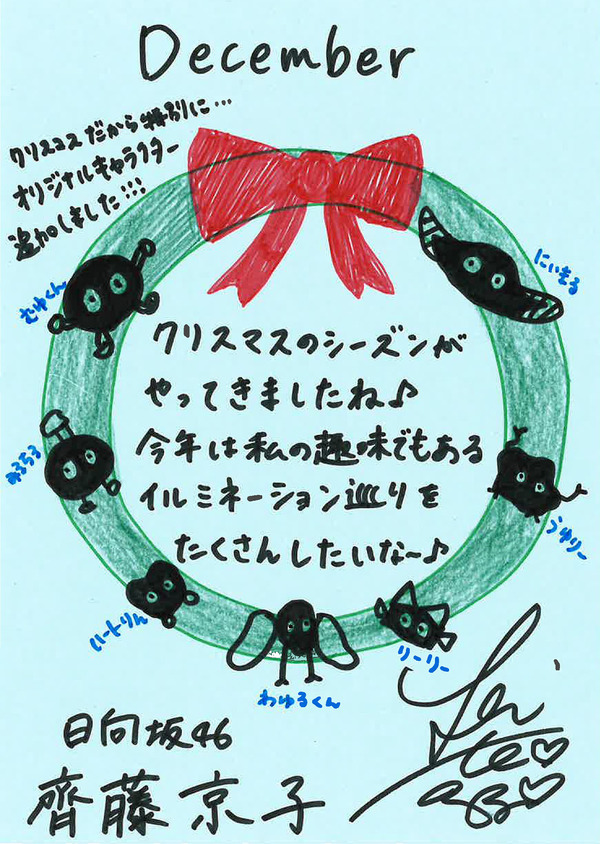 December
クリスマスだから特別に…
オリジナルキャラクター
追加しました!!!
むゆくん
にいまる
クリスマスのシーズンが
やってきましたね♪
今年は私の趣味でもある
イルミネーション巡りを
たくさんしたいな〜♪
みるちる
づゆりー
いーとりん
わゆるくん
リーリー
日向坂46
齊藤京子